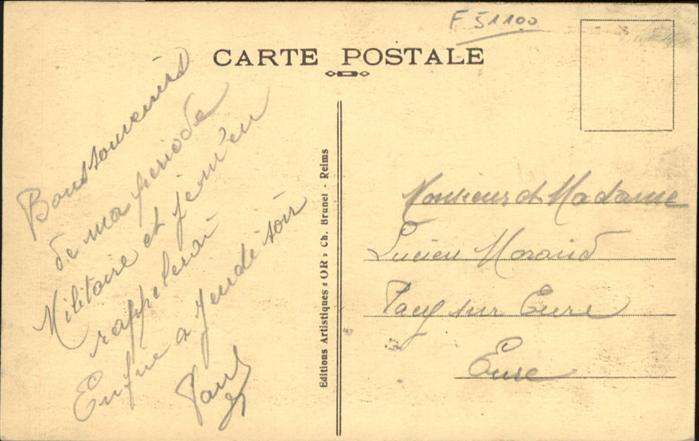 F 51100
CARTE POSTALE
Bons souvenirs
de ma periode
Militaire et je m'en
rappelerai
Enfin a jeudi soir
Paul
Editions Artistiques "OR" Ch. Brunel - Reims
Monsieur et Madame
Lucien Morand
Pacy sur Eure
Eure